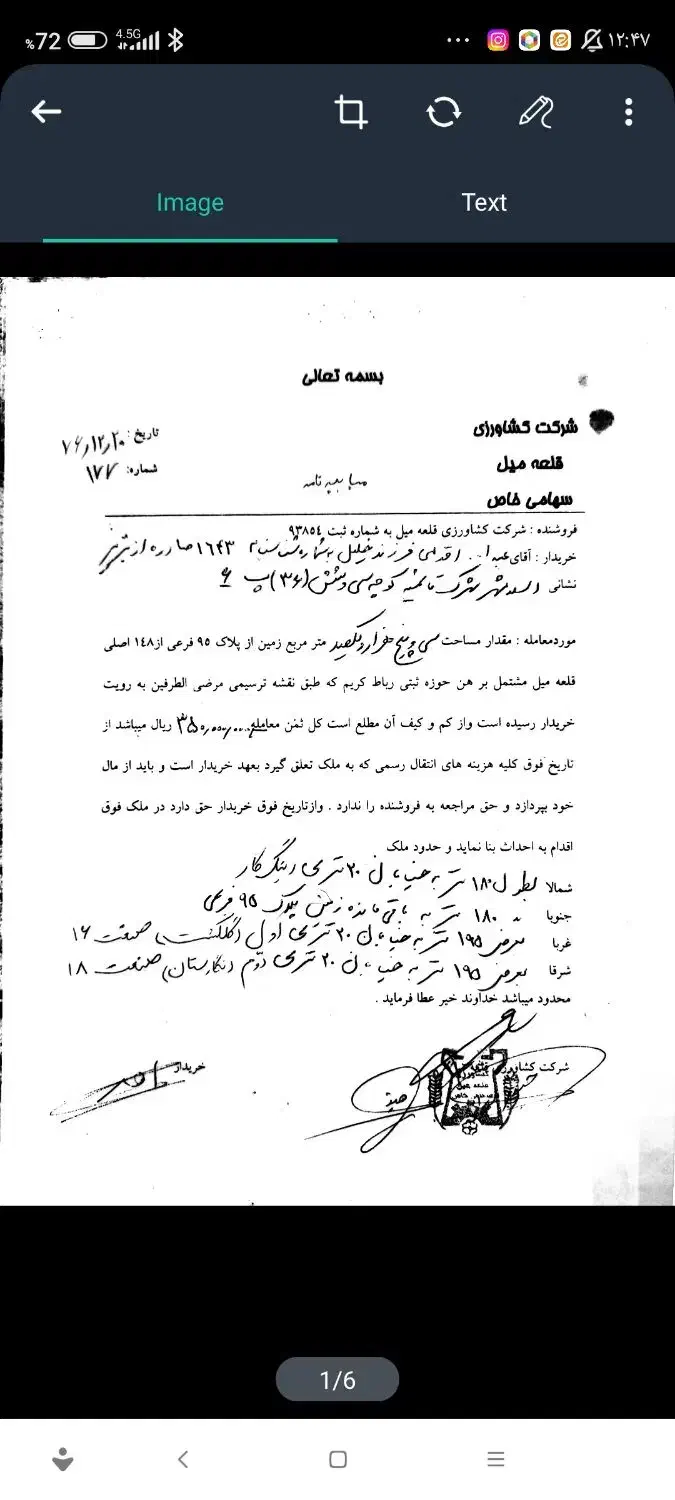 %72 4.5G ۱۲:۴۷
Image Text
بسمه تعالی
شرکت کشاورزی
قلعه میل
سهامی خاص
تاریخ: ۷۶/۱۲/۲۰
شماره: ۱۷۷
مبایعه نامه
فروشنده : شرکت کشاورزی قلعه میل به شماره ثبت ۹۳۸۵٤
خریدار : آقای عبدا... اقدامی فرزند خلیل بشماره شناسنامه ۱۶۴۳ صادره از تبریز
نشانی کوچه سی و شش (۳۶) پ ۶
موردمعامله : مقدار مساحت سی و پنج هزار و یکصد متر مربع زمین از پلاک ۹۵ فرعی از۱٤۸ اصلی
قلعه میل مشتمل بر هن حوزه ثبتی رباط کریم که طبق نقشه ترسیمی مرضی الطرفین به رویت
خریدار رسیده است واز کم و کیف آن مطلع است کل ثمن معامله ۳۵۰,۰۰۰,۰۰۰ ریال میباشد از
تاریخ فوق کلیه هزینه های انتقال رسمی که به ملک تعلق گیرد بعهد خریدار است و باید از مال
خود بپردازد و حق مراجعه به فروشنده را ندارد . وازتاریخ فوق خریدار حق دارد در ملک فوق
اقدام به احداث بنا نماید و حدود ملک
شمالا بطول ۱۸۰ متر به خیابان ۲۰ متری
جنوبا " ۱۸۰ متر به باقی مانده زمین پلاک ۹۵ فرعی
غربا بعرض ۱۹۵ متر به خیابان ۲۰ متری اول (گلگشت) صنعت ۱۶
شرقا بعرض ۱۹۵ متر به خیابان ۲۰ متری دوم (نگارستان) صنعت ۱۸
محدود میباشد خداوند خیر عطا فرماید .
شرکت کشاورزی قلعه
خریدار
1/6